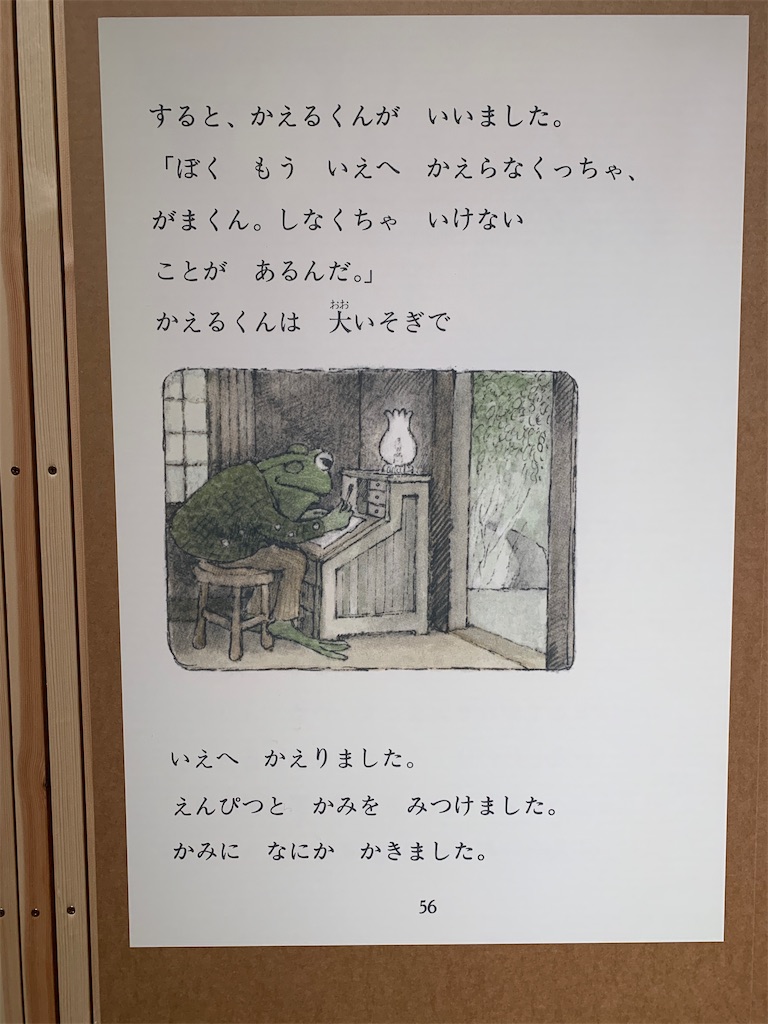 すると、かえるくんが　いいました。
「ぼく　もう　いえへ　かえらなくっちゃ、
がまくん。しなくちゃ　いけない
ことが　あるんだ。」
かえるくんは　大いそぎで
いえへ　かえりました。
えんぴつと　かみを　みつけました。
かみに　なにか　かきました。
56